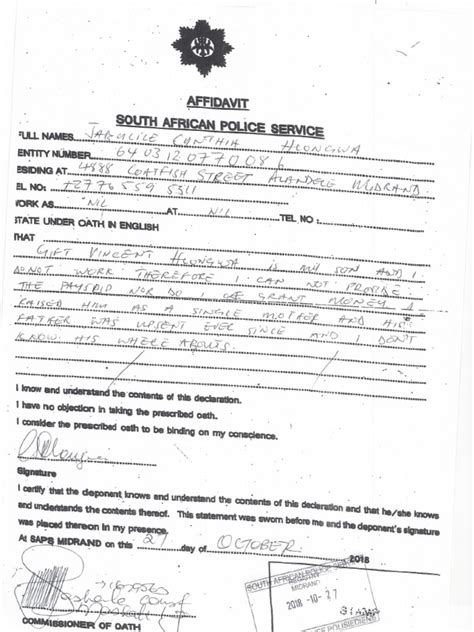 AFFIDAVIT
SOUTH AFRICAN POLICE SERVICE
FULL NAMES JABULILE CYNTHIA HLONGWA
ENTITY NUMBER 640312077008
ESIDING AT 4888 COATFISH STREET MIDRAND
EL NO: +2776 559 5511
WORK AS NIL AT NIL TEL NO:
STATE UNDER OATH IN ENGLISH
THAT
GIFT VINCENT HLONGWA IS MY SON AND I
DO NOT WORK THEREFORE I CAN NOT PROVIDE
THE PAYSLIP NOR DO I GRANT MONEY I
RAISED HIM AS A SINGLE MOTHER AND HIS
FATHER WAS EVER SINCE AND I DON'T
KNOW HIS WHERE ABOUTS.
I know and understand the contents of this declaration.
I have no objection in taking the prescribed oath.
I consider the prescribed oath to be binding on my conscience.
Signature
I certify that the deponent knows and understand the contents of this declaration and that he/she knows
and understands the contents thereof. This statement was sworn before me and the deponent's signature
was placed thereon in my presence.
At SAPS MIDRAND on this 27 day of OCTOBER 2018
SOUTH AFRICAN POLICE
MIDRAND
2018 -10- 27
COMMISSIONER OF OATH